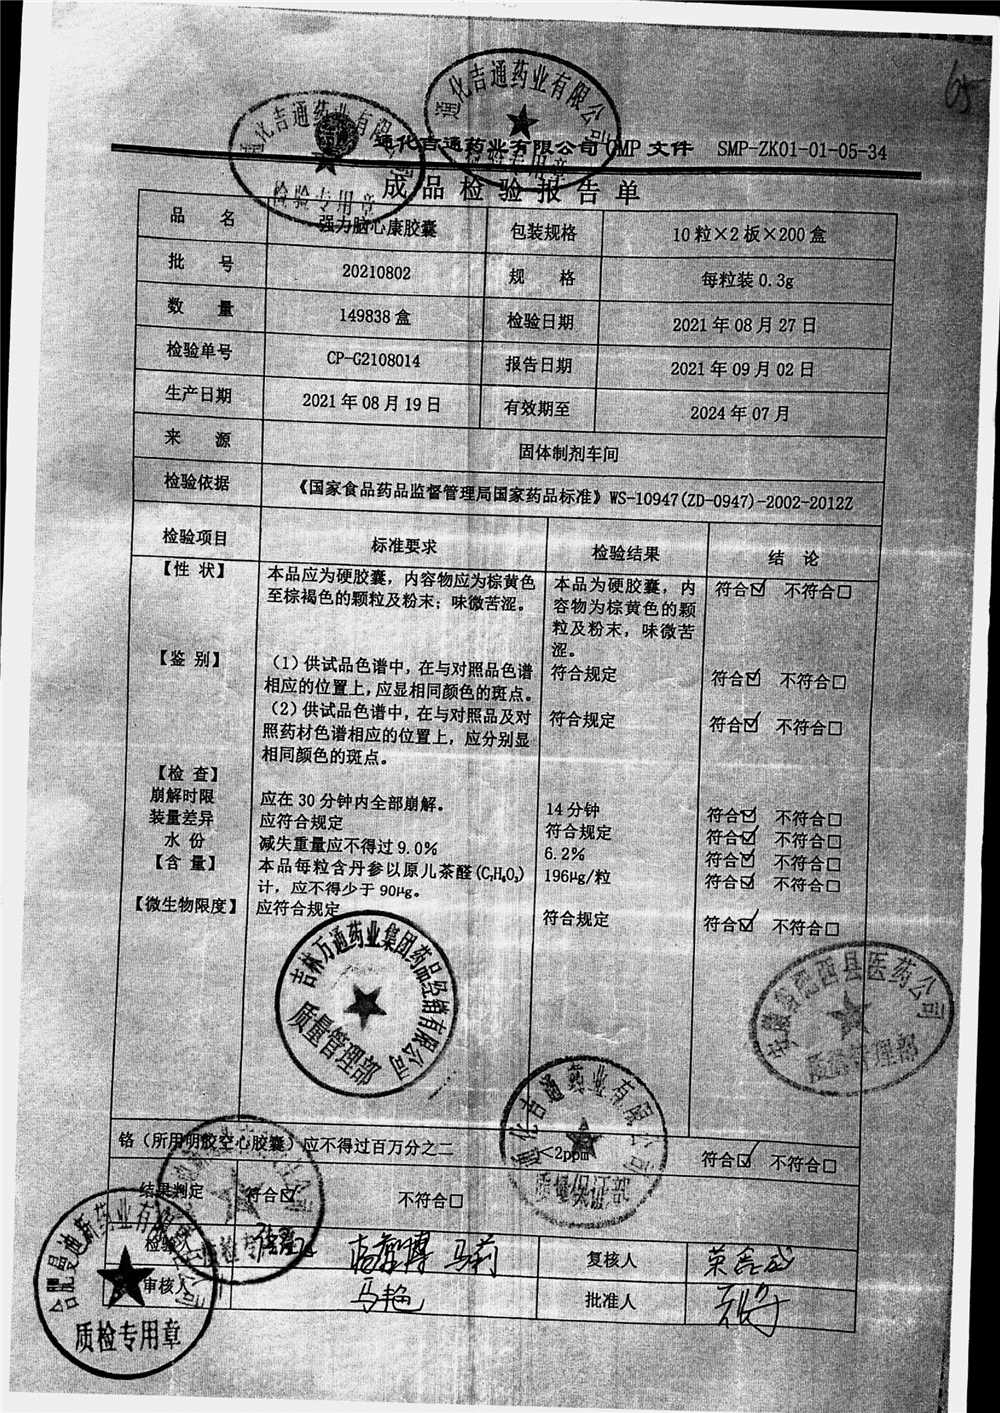 65
通化吉通药业有限公司
检验专用章
通化吉通药业有限公司
检验专用章
通化吉通药业有限公司GMP文件 SMP-ZK01-01-05-34
成品检验报告单
品 名 强力脑心康胶囊 包装规格 10粒×2板×200盒
批 号 20210802 规 格 每粒装0.3g
数 量 149838盒 检验日期 2021年08月27日
检验单号 CP-G2108014 报告日期 2021年09月02日
生产日期 2021年08月19日 有效期至 2024年07月
来 源 固体制剂车间
检验依据 《国家食品药品监督管理局国家药品标准》WS-10947(ZD-0947)-2002-2012Z
检验项目 标准要求 检验结果 结 论
【性 状】 本品应为硬胶囊，内容物应为棕黄色 本品为硬胶囊，内 符合☑ 不符合□
至棕褐色的颗粒及粉末；味微苦涩。 容物为棕黄色的颗
粒及粉末，味微苦
涩。
【鉴 别】 （1）供试品色谱中，在与对照品色谱 符合规定 符合☑ 不符合□
相应的位置上，应显相同颜色的斑点。
（2）供试品色谱中，在与对照品及对 符合规定 符合☑ 不符合□
照药材色谱相应的位置上，应分别显
相同颜色的斑点。
【检 查】
崩解时限 应在30分钟内全部崩解。 14分钟 符合☑ 不符合□
装量差异 应符合规定 符合规定 符合☑ 不符合□
水 份 减失重量应不得过9.0% 6.2% 符合☑ 不符合□
【含 量】 本品每粒含丹参以原儿茶醛(C₇H₆O₃) 196μg/粒 符合☑ 不符合□
计，应不得少于90μg。
【微生物限度】 应符合规定 符合规定 符合☑ 不符合□
吉林万通药业集团药品经销有限公司
质量管理部
安徽省肥西县医药公司
质量管理部
通化吉通药业有限公司
质量保证部
铬（所用明胶空心胶囊）应不得过百万分之二 <2ppm 符合☑ 不符合□
结果判定 符合☑ 不符合□
检验人 马莉 复核人
审核人 马艳 批准人
合肥曼迪新药业有限公司
质检专用章